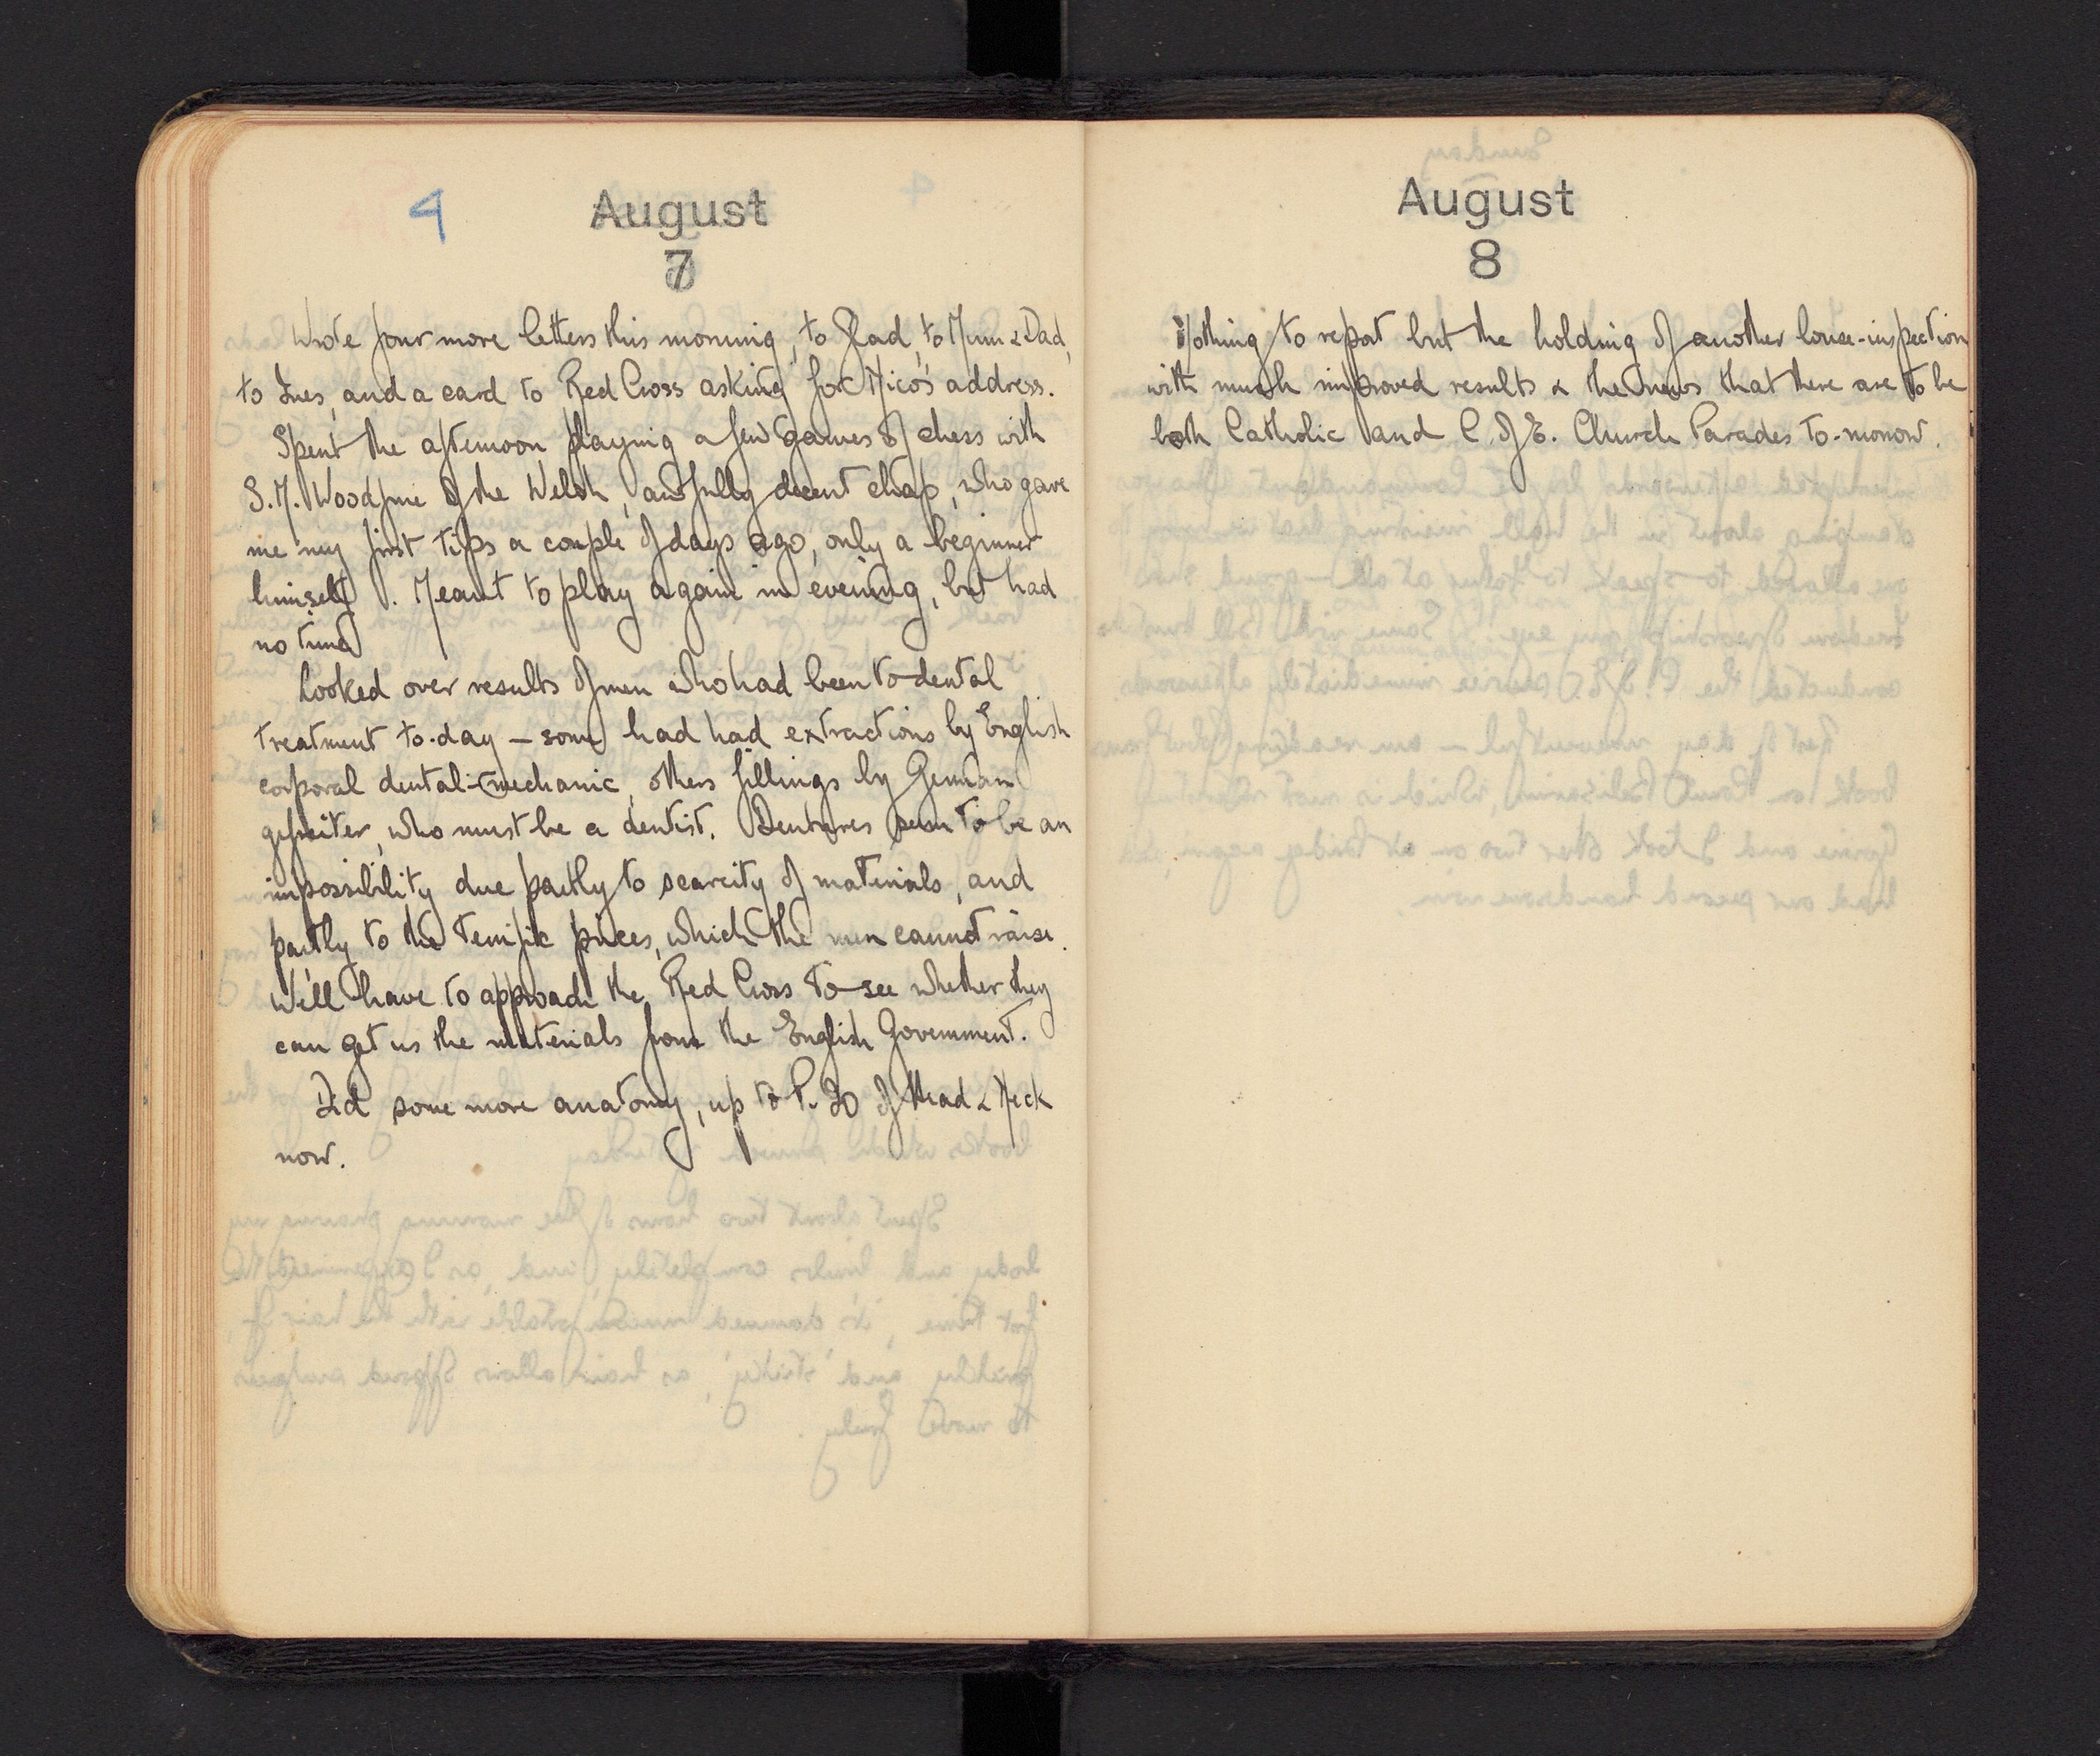 4
August
7
Wrote four more letters this morning, to Glad, to Mum & Dad,
to Ines, and a card to Red Cross asking for Nico's address.
Spent the afternoon playing a few games of chess with
S.M. Woodfine of the Welsh, awfully decent chap, who gave
me my first tips a couple of days ago, only a beginner
himself. Meant to play again in evening, but had
no time
Looked over results of men who had been to dental
treatment to-day – some had had extractions by English
corporal dental-mechanic, others fillings by German
gefreiter, who must be a dentist. Dentures seem to be an
impossibility due partly to scarcity of materials, and
partly to the terrific prices, which the men cannot raise.
We'll have to approach the Red Cross to see whether they
can get us the materials from the English Government.
Did some more anatomy, up to P. 20 of Head & Neck
now.
August
8
Nothing to report but the holding of another louse-inspection
with much improved results & the news that there are to be
both Catholic and C. of E. Church Parades to-morrow.